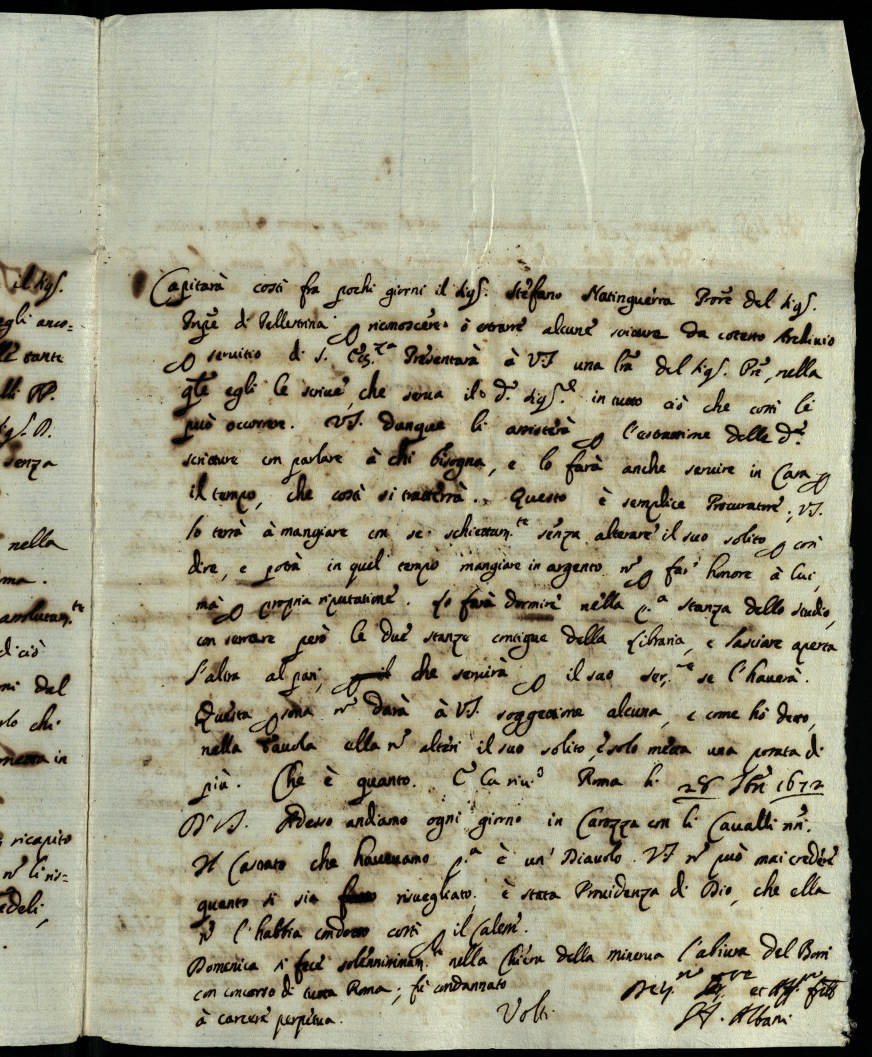 il Sig.
egli anco=
tante
alli PP.
Sig. D.
senza
nella
ma.
assolutam.te
di ciò
ni del
chi
metta in
ricapito
nõ li ris=
edeli,
Capitarà costì fra pochi giorni il Sig. Stefano Natinguerra Procre del Sig.
Prñpe di Pellestrina ꝑ riconoscere, ò estrarre alcune scritture da cotesto Archivio
ꝑ servitio di S. Ecc.za Presentarà à V.S. una lrã del Sig. Prñe, nella
qle egli le scrive, che serva il d.o Sig.re in tutto ciò che costì le
può occorrere. V.S. dunque li assisterà ꝑ l'estrattione delle d.e
scritture con parlare à chi bisogna, e lo farà anche servire in Casa ꝑ
il tempo, che costì si tratterrà. Questo è semplice Procuratore; V.S.
lo terrà à mangiare con se schiettam.te senza alterare il suo solito ꝑ così
dire, e potrà in quel tempo mangiare in argento nõ ꝑ far honore à lui,
mà ꝑ propria riputatione. Lo farà dormire nella p.a stanza dello studio,
con serrare però le due stanze contigue della libraria, e lasciare aperta
l'altra al pari, che servirà ꝑ il suo ser.re se l'haverà.
Questa ꝑsona nõ darà à V.S. soggettione alcuna, e come hò detto,
nella Tavola ella nõ alteri il suo solito, è solo metta una portata di
più. Che è quanto. E la riv.o Roma li 28 8bre 1672
D. V.S. Adesso andiamo ogni giorno in Carozza con li Cavalli nri.
Il Castrato che havevamo p.a è un' Diavolo. V.S. nõ può mai credere
quanto si sia risvegliato; è stata Providenza di Dio, che ella
nõ l'habbia condotto costì ꝑ il Calesse.
Domenica si fece solennissimam.te nella Chiesa della Minerva l'abiura del Borri
con concorso di tutta Roma; fù condannato
à carcere perpetua.
Volti
Dev.mo Ser.re et Aff.mo frãllo
Albani